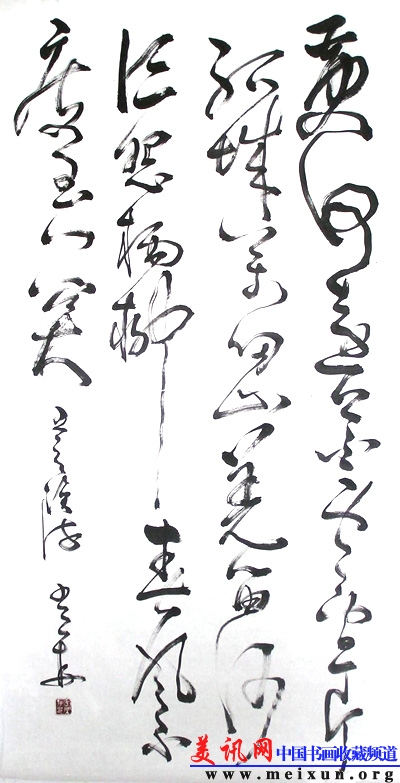 黄河遠上白雲间一片
孤城萬仞山羌笛何
须怨楊柳春風不
度玉门关
美讯网 中国书画收藏频道
www.meixun.org